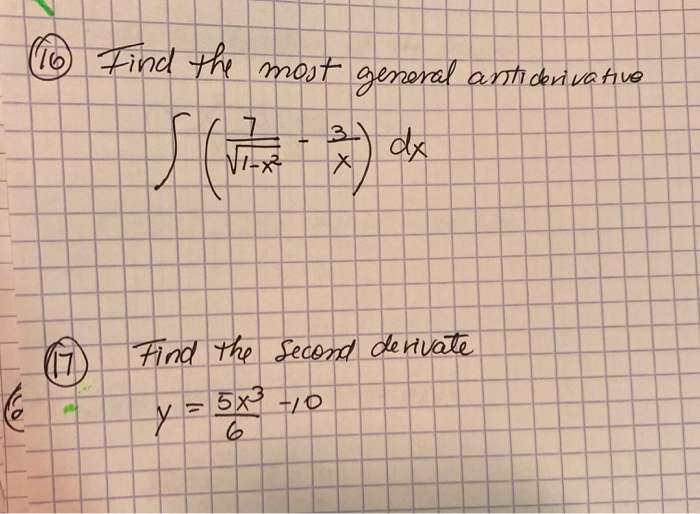 16 Find the most general antiderivative
∫ (7/√(1-x²) - 3/x) dx
17 Find the second derivate
y = 5x³/6 -10